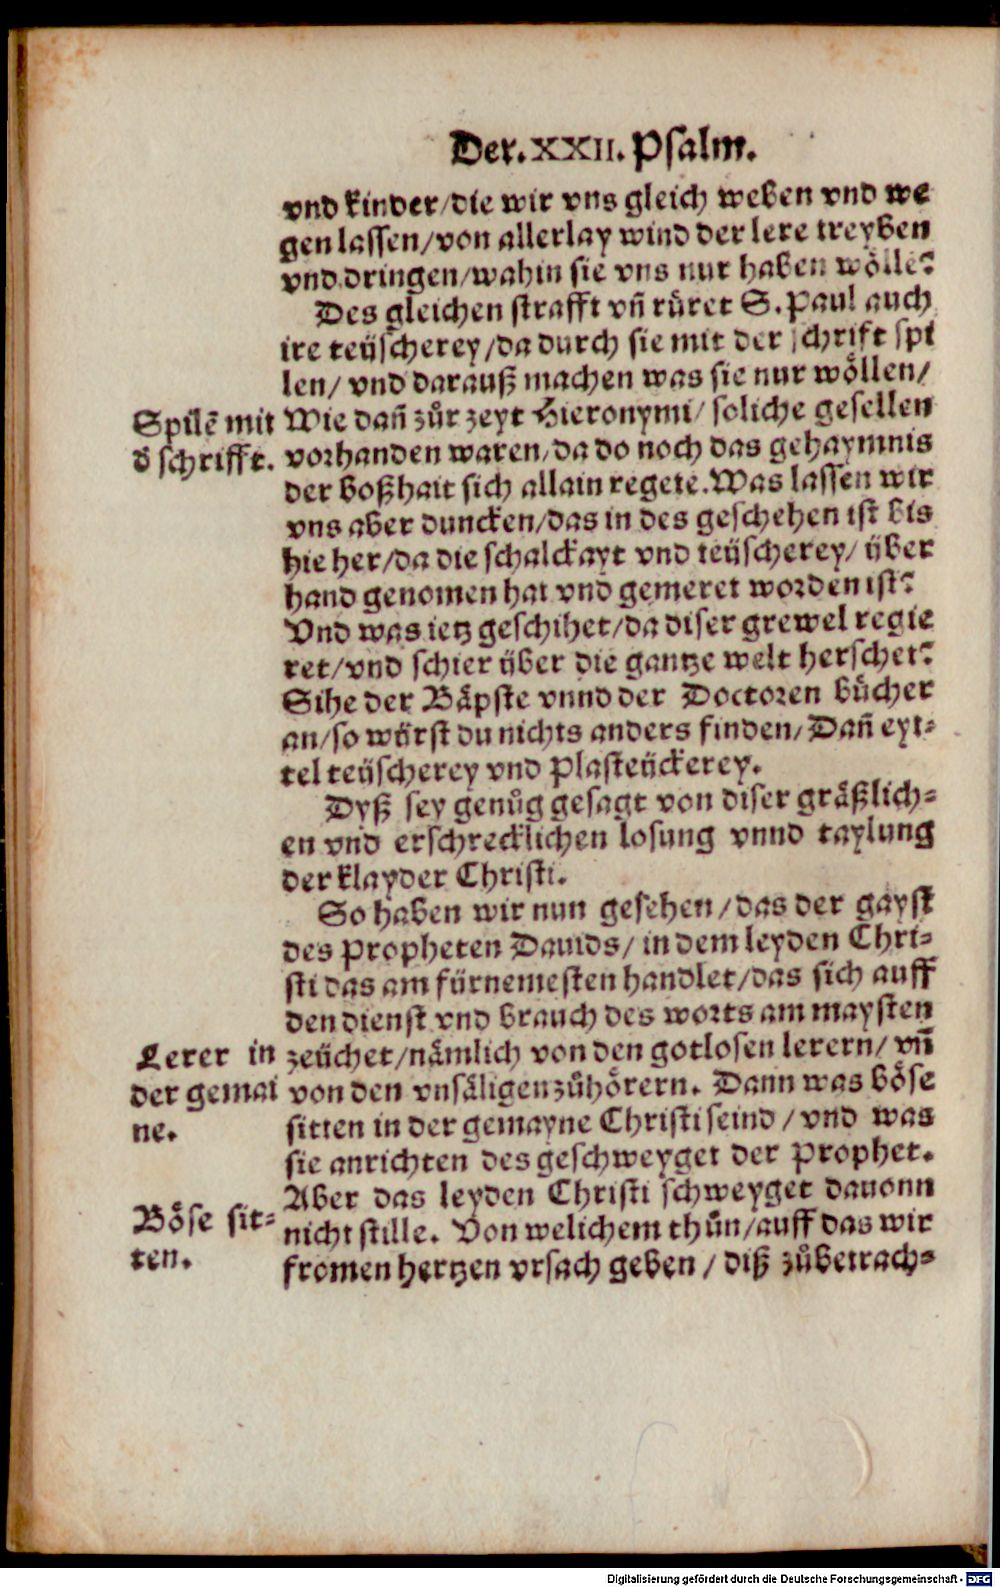 Der. XXII. Psalm.
vnd kinder/die wir vns gleich weben vnd we
gen lassen/von allerlay wind der lere treyben
vnd dringen/wahin sie vns nur haben wölle?
Des gleichen strafft vn̄ rüret S. Paul auch
ire teüscherey/da durch sie mit der schrift spi
len/ vnd darauß machen was sie nur wöllen/
Spilē mit
d̄ schrifft.
Wie dan̄ zůr zeyt Hieronymi/ soliche gesellen
vorhanden waren/da do noch das gehaymnis
der boßhait sich allain regete. Was lassen wir
vns aber duncken/das in des geschehen ist bis
hie her/da die schalckayt vnd teüscherey/ über
hand genomen hat vnd gemeret worden ist?
Vnd was ietz geschihet/da diser grewel regie
ret/vnd schier über die gantze welt herschet?
Sihe der Bäpste vnnd der Doctoren bůcher
an/so würst du nichts anders finden/Dan̄ eyt-
tel teüscherey vnd plasteückerey.
Dyß sey genůg gesagt von diser gräßlich-
en vnd erschrecklichen losung vnnd taylung
der klayder Christi.
So haben wir nun gesehen/das der gayst
des Propheten Dauids/ in dem leyden Chri-
sti das am fürnemesten handlet/das sich auff
den dienst vnd brauch des worts am maysten
Lerer in
der gemai
ne.
zeüchet/nämlich von den gotlosen lerern/ vn̄
von den vnsäligen zůhörern. Dann was böse
sitten in der gemayne Christi seind/ vnd was
sie anrichten des geschweyget der Prophet.
Böse sit-
ten.
Aber das leyden Christi schweyget dauonn
nicht stille. Von welichem thůn/auff das wir
fromen hertzen vrsach geben / diß zůbetrach-
Digitalisierung gefördert durch die Deutsche Forschungsgemeinschaft - DFG